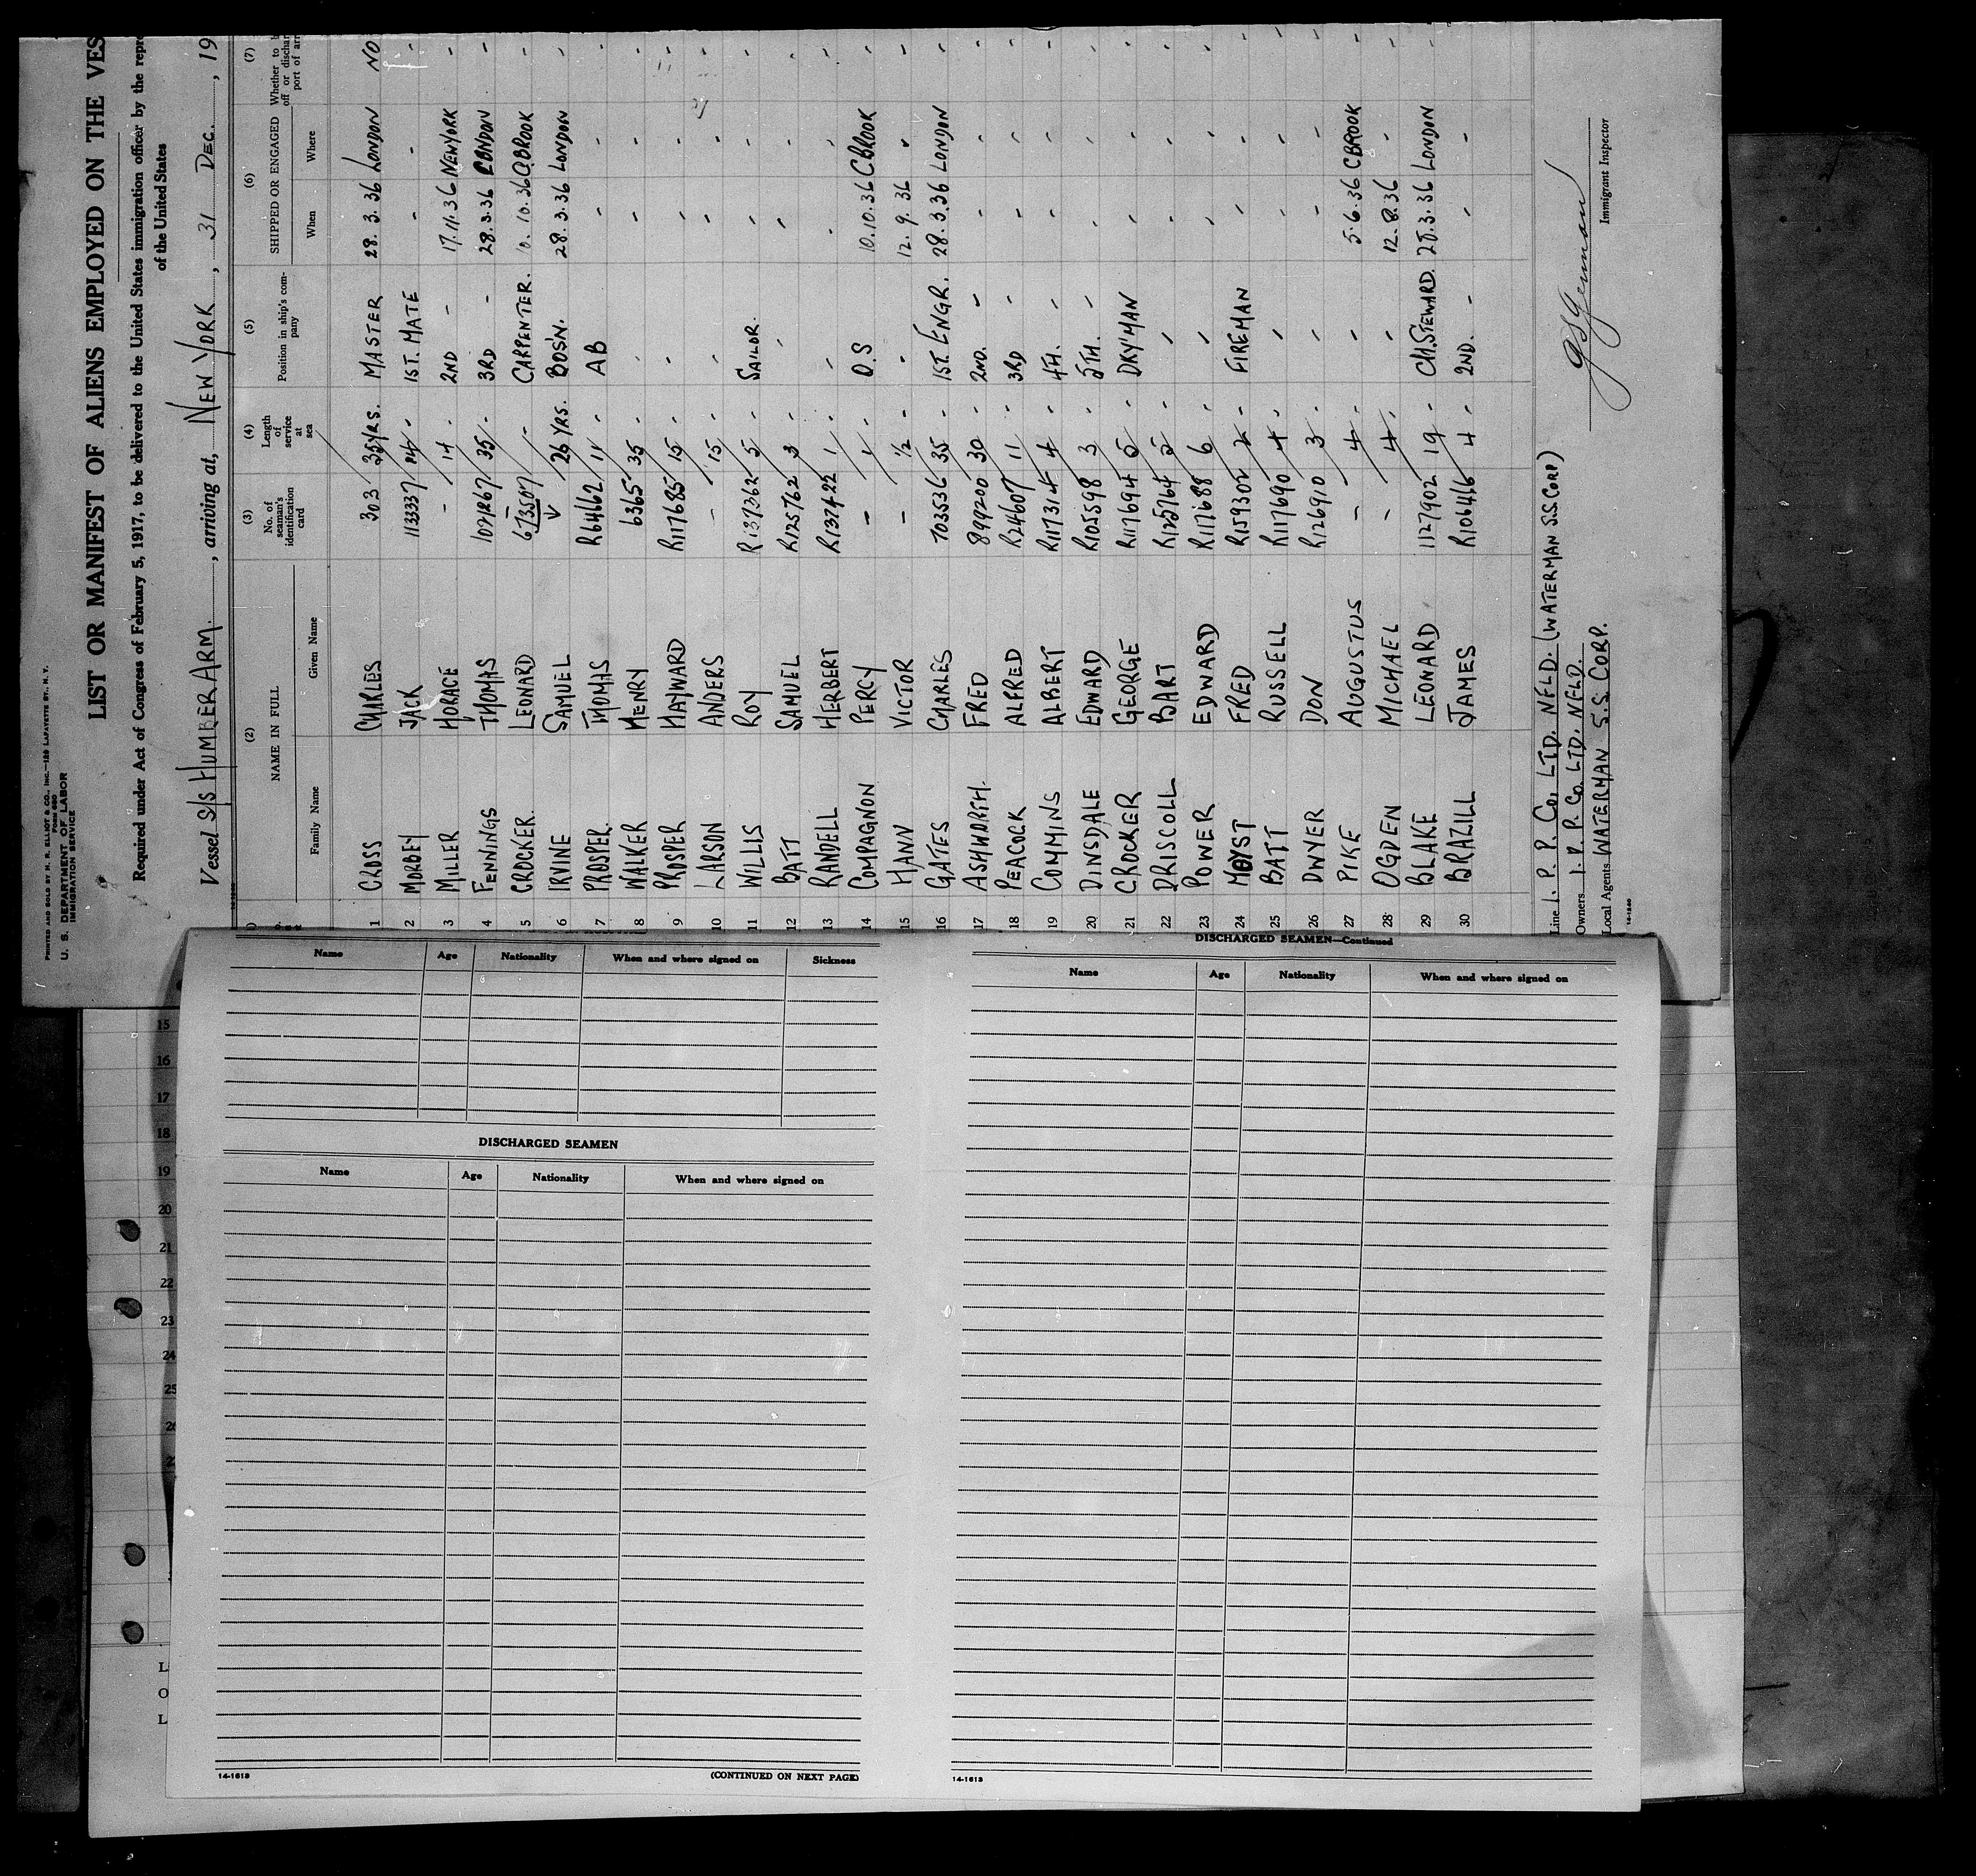 PRINTED AND SOLD BY M. R. ELLIOT & CO., INC.—129 LAFAYETTE ST., N. Y.
Form 680
U. S. DEPARTMENT OF LABOR
IMMIGRATION SERVICE
LIST OR MANIFEST OF ALIENS EMPLOYED ON THE VES
Required under Act of Congress of February 5, 1917, to be delivered to the United States immigration officer by the repre
of the United States
Vessel S/S HUMBER ARM., arriving at, NEW YORK, 31 DEC., 19
(2) (3) (4) (5) (6) (7)
NAME IN FULL No. of seaman's identification card Length of service at sea Position in ship's company SHIPPED OR ENGAGED Whether to b off or dischar port of arr
Family Name Given Name When Where
1 CROSS CHARLES 303 35 YRS. MASTER 28.3.36 LONDON NO
2 MORBEY JACK 113337 14 - 1ST. MATE - - -
3 MILLER HORACE - 14 - 2ND - 17.11.36 NEW YORK -
4 FENNINGS THOMAS 1021267 35 - 3RD - 28.3.36 LONDON -
5 CROCKER. LEONARD 673507 - CARPENTER. 10.10.36 C.BROOK -
6 IRVINE SAMUEL 26 YRS. BOS'N. 28.3.36 LONDON -
7 PROSPER. THOMAS R64662 11 - AB - - -
8 WALKER HENRY 6365 35 - - - - -
9 PROSPER HAYWARD R117685 15 - - - - -
10 LARSON ANDERS - 15 - - - - -
11 WILLIS ROY R137362 5 - SAILOR. - - -
12 BATT SAMUEL R125762 3 - - - - -
13 RANDELL HERBERT R137422 1 - - - - -
14 COMPAGNON PERCY - 1 - O.S 10.10.36 C BROOK -
15 HANN VICTOR - ½ - - 12.9.36 " -
16 GATES CHARLES 703536 35 - 1ST. ENGR. 28.3.36 LONDON -
17 ASHWORTH. FRED 899200 30 - 2ND. - - - -
18 PEACOCK ALFRED R24607 11 - 3RD - - - -
19 COMMINS ALBERT R117314 4 - 4TH. - - - -
20 DINSDALE EDWARD R105598 3 - 5TH. - - - -
21 CROCKER GEORGE R117694 5 - DKY'MAN - - -
22 DRISCOLL BART R125764 5 - - - - -
23 POWER EDWARD R117688 6 - - - - -
24 MOYST FRED R159302 2 - FIREMAN - - -
25 BATT RUSSELL R117690 4 - - - - -
26 DWYER DON R126910 3 - - - - -
27 PIKE AUGUSTUS - 4 - - 5.6.36 C BROOK -
28 OGDEN MICHAEL - 4 - - 12.8.36 - -
29 BLAKE LEONARD 1127902 19 - CH. STEWARD. 28.3.36 LONDON -
30 BRAZILL JAMES R106416 4 - 2ND. - - - -
Line I. P. P. Co. LTD. NFLD. (WATERMAN S.S. CORP)
Owners I. P. P. Co. LTD. NFLD.
Local Agents WATERMAN S.S. CORP.
Immigrant Inspector
Name Age Nationality When and where signed on Sickness
DISCHARGED SEAMEN
Name Age Nationality When and where signed on
14-1613 (CONTINUED ON NEXT PAGE)
DISCHARGED SEAMEN—Continued
Name Age Nationality When and where signed on
14-1613
15
16
17
18
19
20
21
22
23
24
25
L
O
L